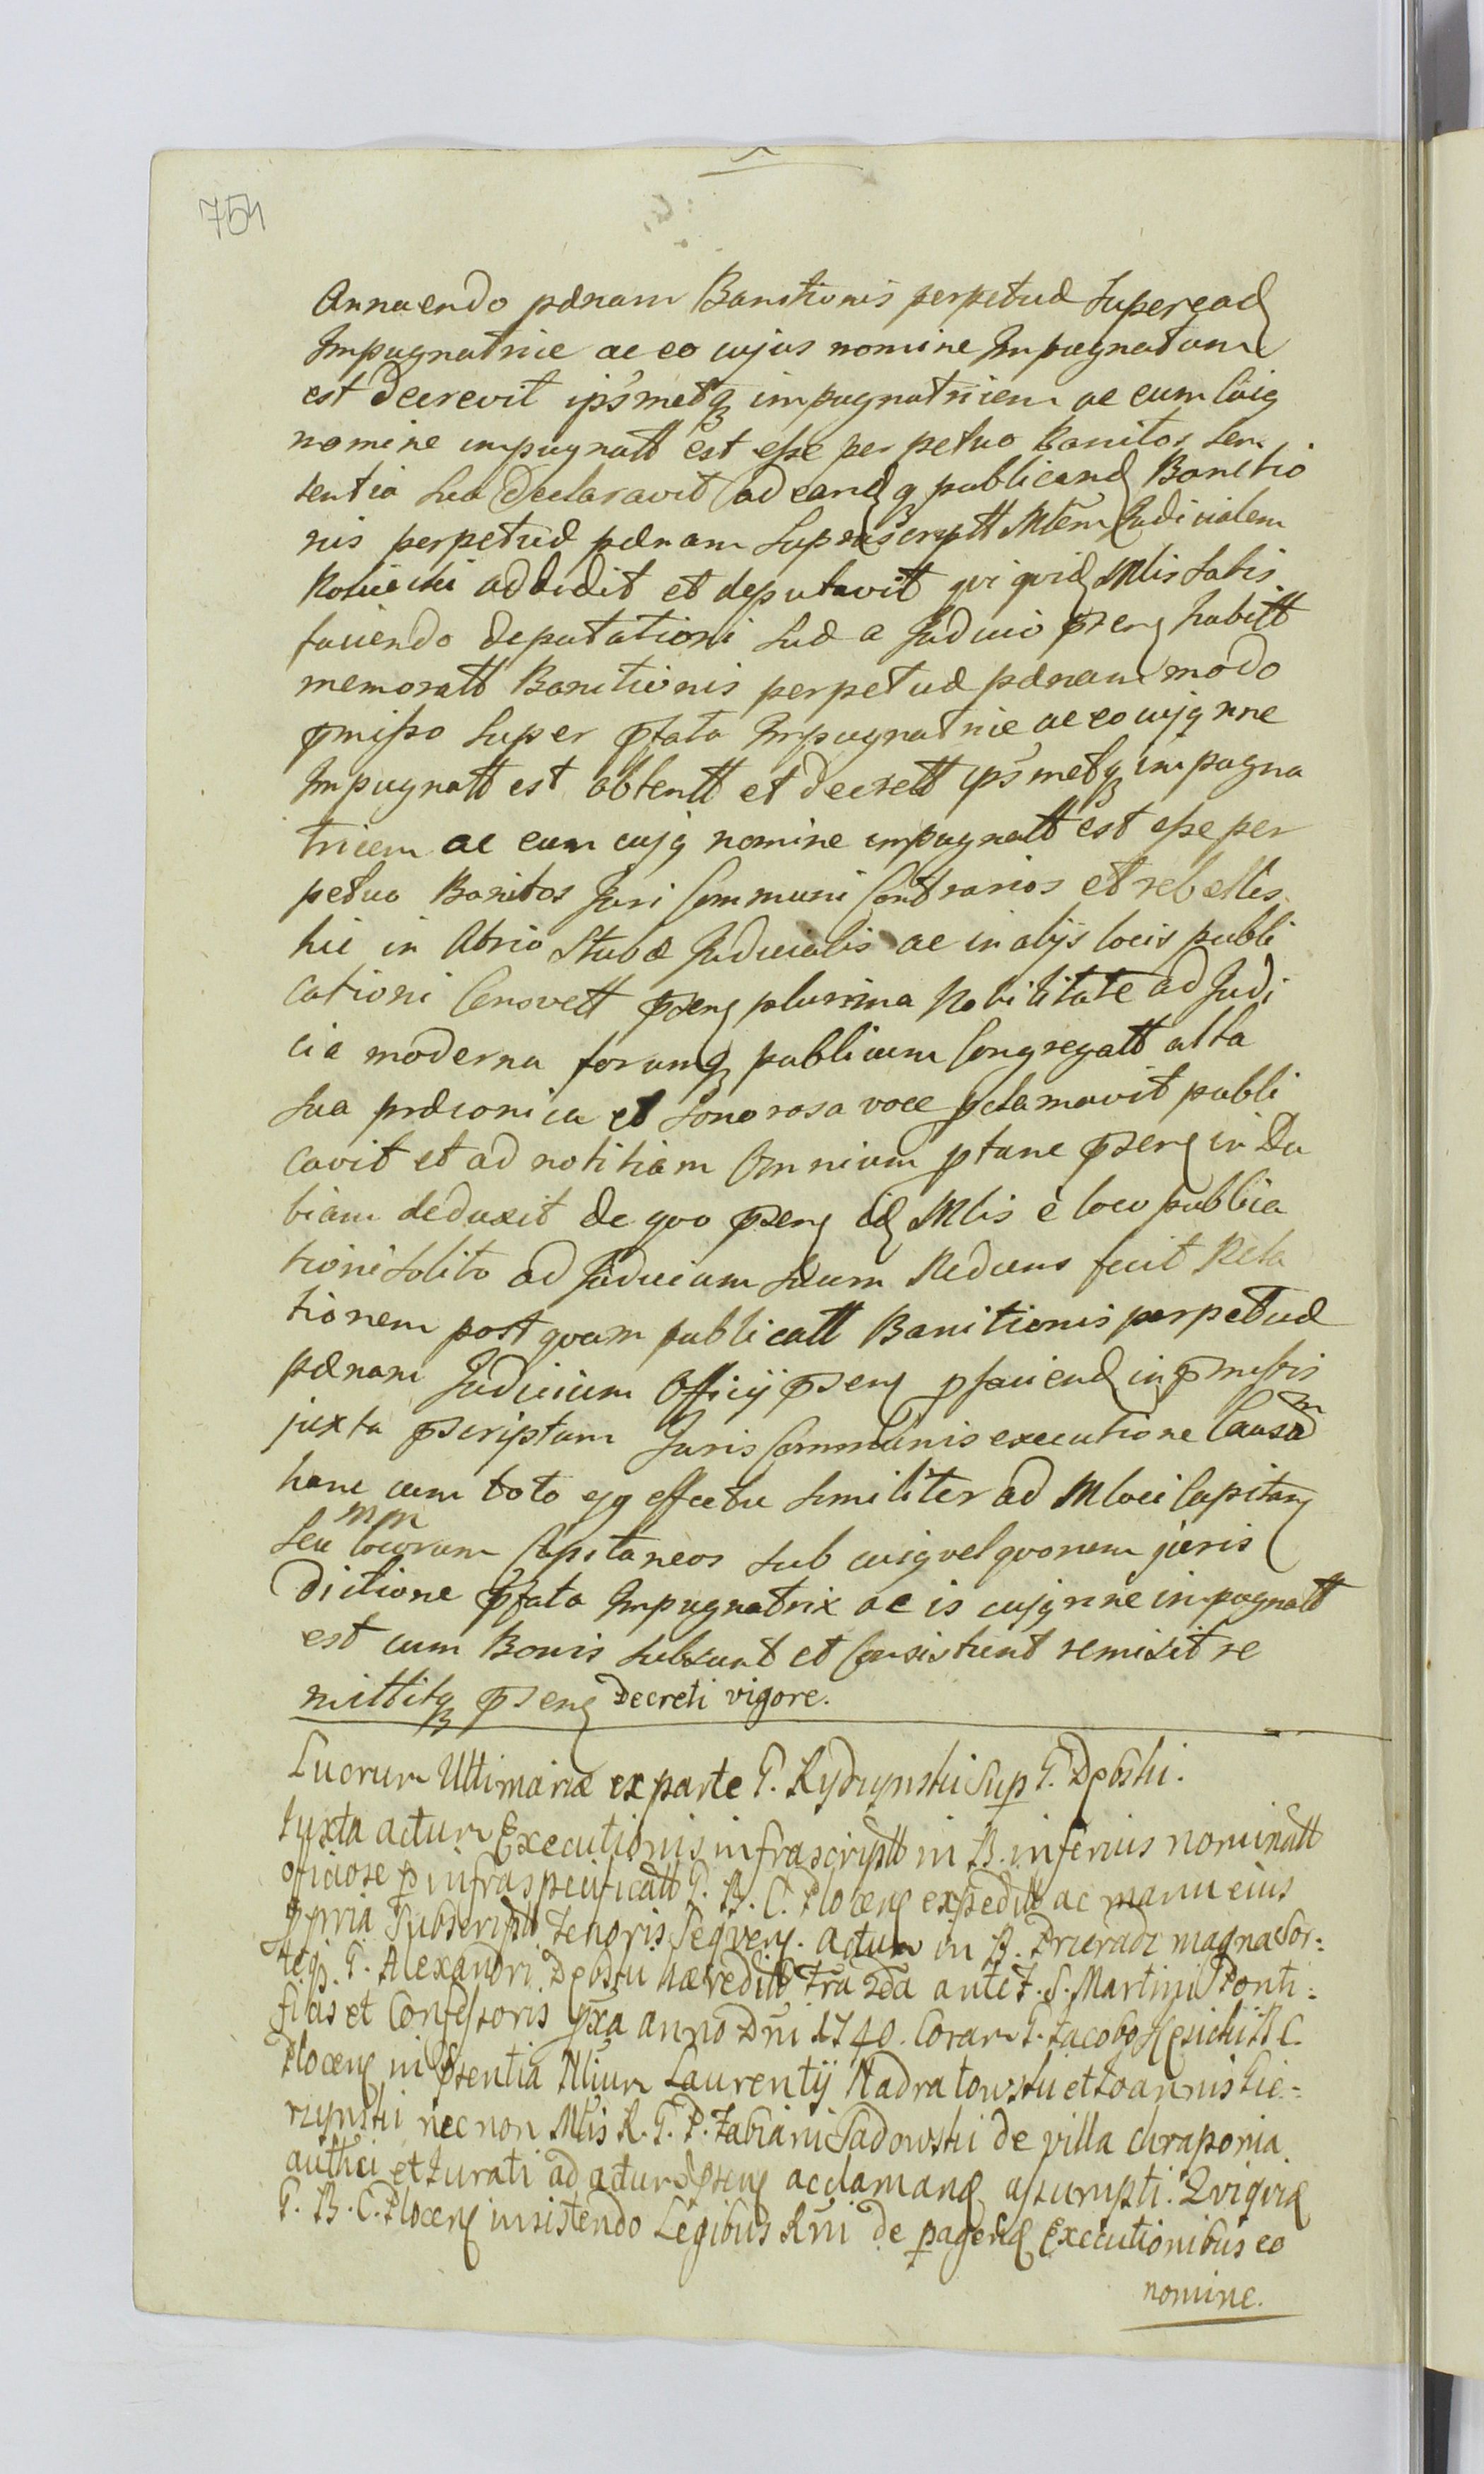 754
Annuendo pænam Banitionis perpetuæ super ead
Impugnatrice ac eo cujus nomine Impugnatum
est decrevit ipsmetq impugnatricem ac eum cuig
nomine impugnatt est eße perpetuo Banitos Sen
tentia sua declaravit ad eandq publicand Banitio
nis perpetuæ pænam suprascriptt Mtem Judicialem
addidit et deputavit qui quid Mlis satis
faciendo deputationi suæ a Judicio pseng habitt
memoratt Banitionis perpetuæ pænam modo
pmißo super pfata Impugnatrice ac eo cujq nne
Impugnatt est obtentt et decrett ipsmetq impugna
tricem ac eum cujq nomine impugnatt est eße per
petuo Banitos Juri Communi Contrarios et rebelles
hic in Atrio Stubæ Judicialis ac in alijs locis publi
cationi Consvett pseng plurima Nobilitate ad Judi
cia moderna forumq publicum Congregatt alta
sua præconica et sonorosa voce pclamavit publi
cavit et ad notitiam Omnium ptunc pseng in Du
biam deduxit de quo pseng id Mlis e loco publica
tioni solito ad Judicium suum Rediens fecit Rela
tionem post quam publicatt Banitionis perpetuæ
pænam Judicium Officij pseng p faciend in pmißis
juxta pscriptum Juris Communis executione Causam
hanc cum toto ejq effectu similiter ad Mloci Capitang
seu mm locorum Capitaneos sub cuiq vel quorum juris
dictione pfata Impugnatrix ac is cujq nne impugnatt
est cum Bonis subsunt et Consistunt remisit re
mittitq pseng Decreti vigore.
Lucrum Ultimariæ ex parte G. Rydzynski sup G. Dębski.
Iuxta actum Executionis infrascriptt in B. inferius nominatt
oficiose p infraspecificatt G. B. C. Plocens expeditt ac manu eius
ppria Subscriptt tenoris Seqveng. Actum in B. magna Sor=
teq G. Alexandri Dębski hæreditt Fra 2da ante F. S. Martini Ponti=
ficis et Confeßoris pxa anno Dni 1740. Coram G. Jacobo B C.
Plocens in Psentia Nlium Laurentij Nadratowski et Joannis Lie=
rzynski nec non Mlis R. G. P. Fabiani Sadowski de villa Chraponia
authci et Jurati ad actum pseng acclamand aßumpti. Qviqvid
G. B. C. Plocens insistendo Legibus Rni de pagend Executionibus eo
nomine.